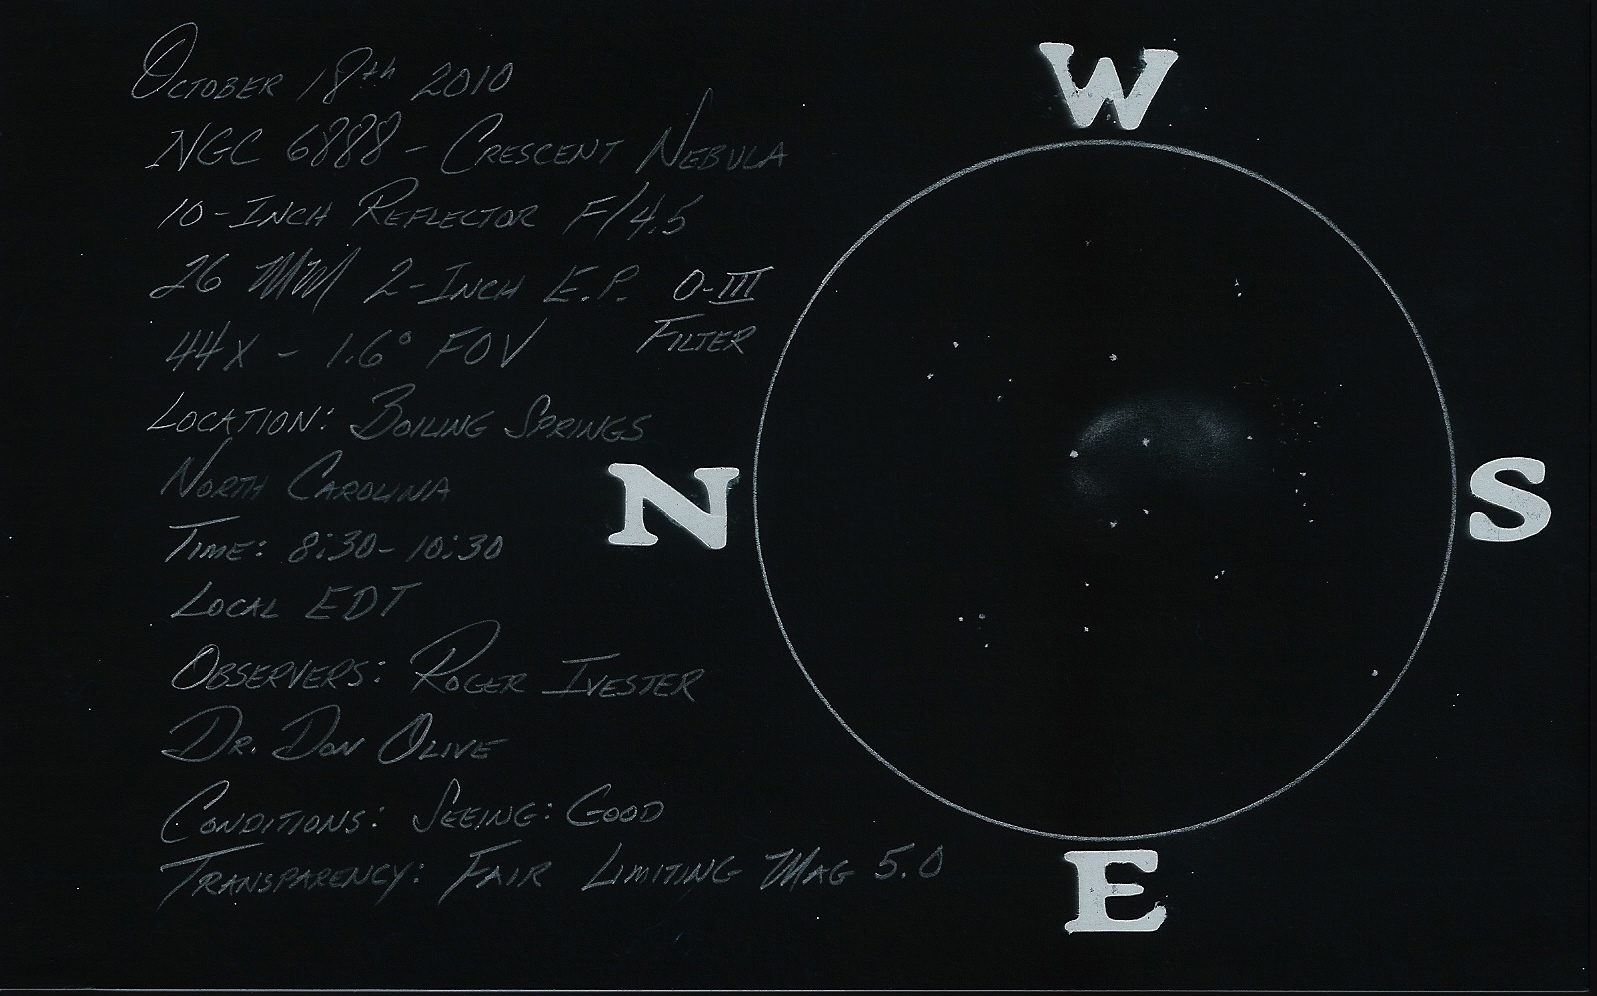 October 18th 2010
NGC 6888 - Crescent Nebula
10-Inch Reflector F/4.5
26 mm 2-Inch E.P. O-III
Filter
44x - 1.6° FOV
Location: Boiling Springs
North Carolina
Time: 8:30 - 10:30
Local EDT
Observers: Roger Ivester
Dr. Don Olive
Conditions: Seeing: Good
Transparency: Fair Limiting Mag 5.0
W
N
S
E